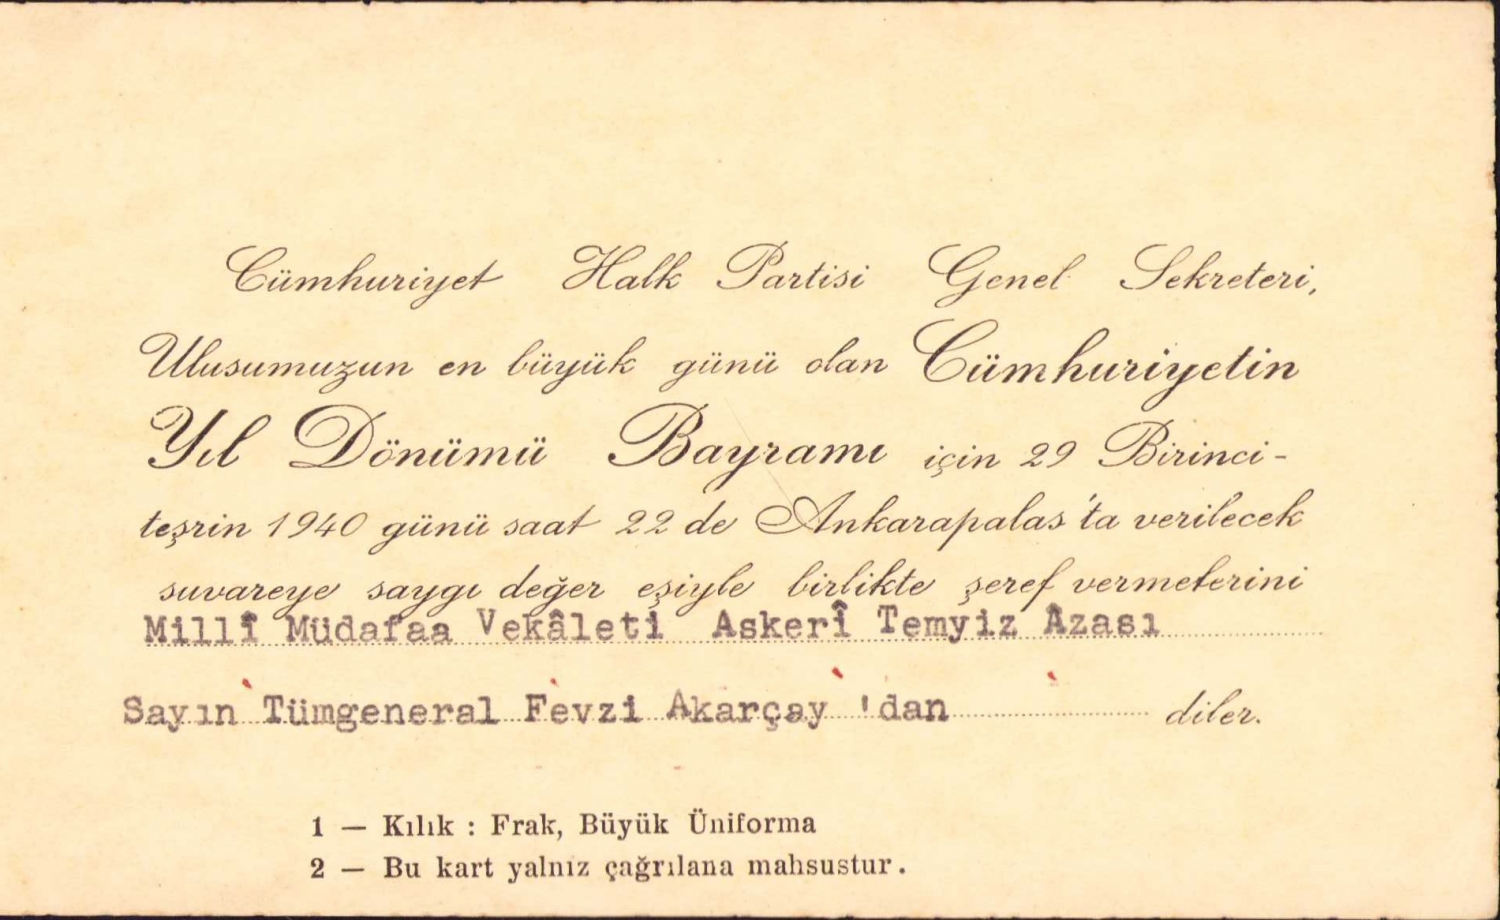 Cümhuriyet Halk Partisi Genel Sekreteri,
Ulusumuzun en büyük günü olan Cümhuriyetin
Yıl Dönümü Bayramı için 29 Birinci-
teşrin 1940 günü saat 22 de Ankarapalas'ta verilecek
suvareye saygı değer eşiyle birlikte şeref vermelerini
Millî Müdafaa Vekâleti Askerî Temyiz Âzası
Sayın Tümgeneral Fevzi Akarçay 'dan diler.
1 — Kılık : Frak, Büyük Üniforma
2 — Bu kart yalnız çağrılana mahsustur.